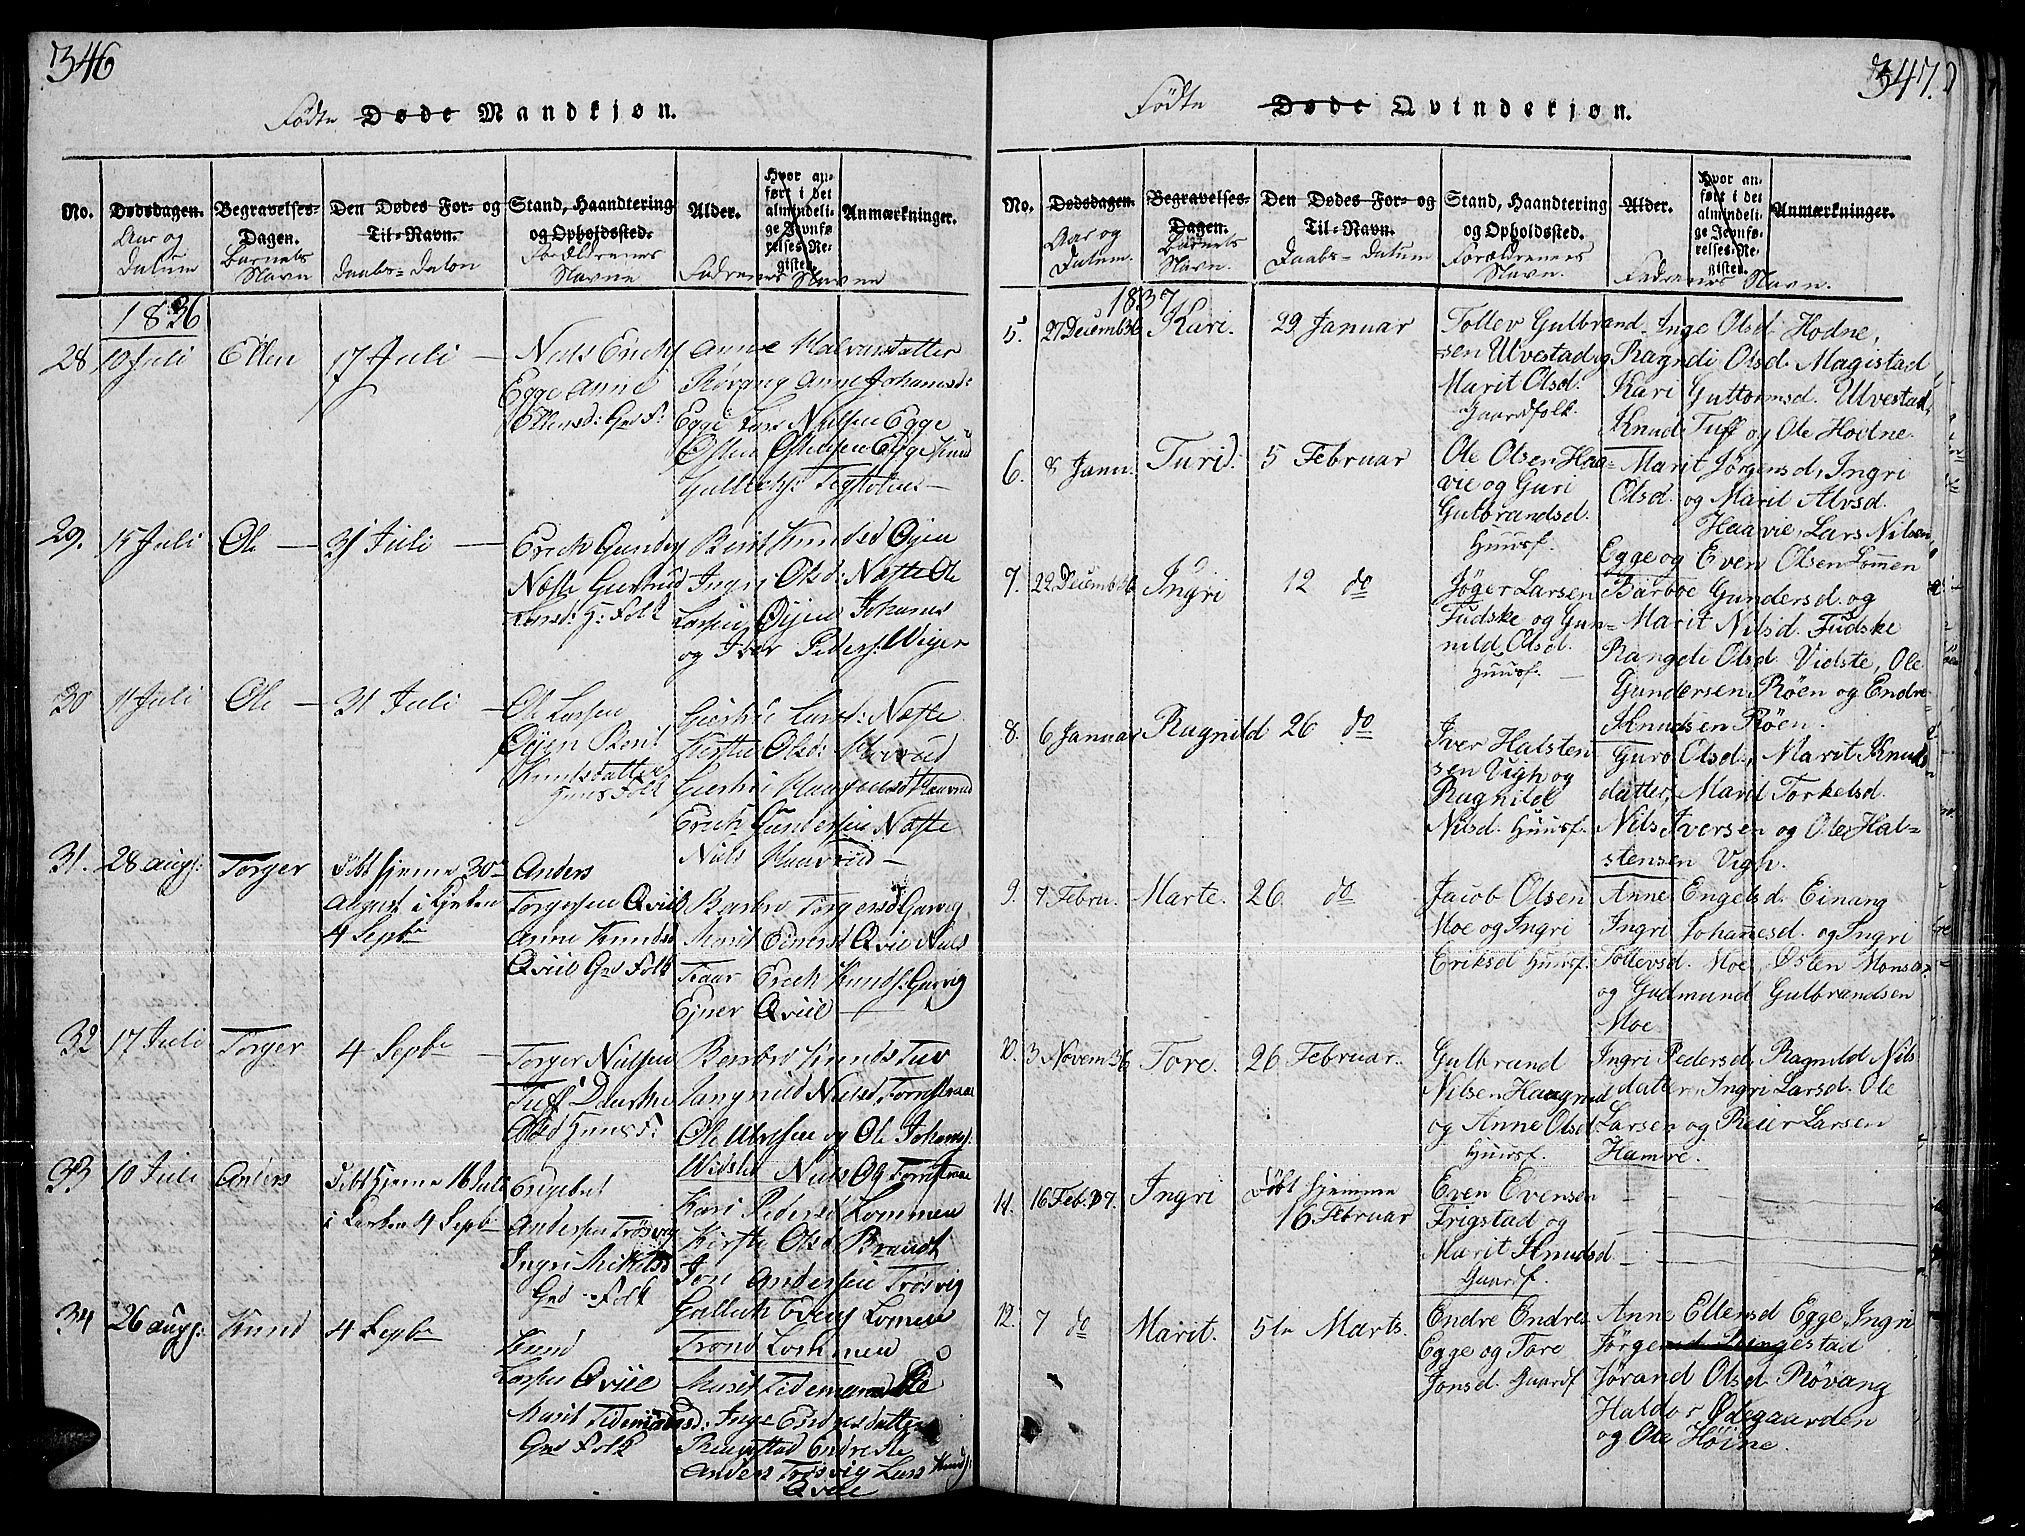 346
Fødte Døde Mandkjøn.
No.
Dødsdagen.
Aar og
Datum
Begravelses-
Dagen.
Barnets
Navn
Den Dødes For- og
Til-Navn.
Daabs-Daton
Stand, Haandtering
og Opholdssted.
Forældrenes
Navne
Alder.
Hvor an-
ført i det
almindeli-
ge Jevnfø-
relses-Re-
gister.
Anmærkninger.
Faddernes Navne
1836
28 10 Juli Ellen 17 Juli —
Niels Erichs
Egge Anne
Ellensd: Grd F:
Anne Halvorsdatter
Røvang Anne Johannesd:
Egge Lars Nielsen Egge
Østen Østensen Egge Knud
Gulleichs:
29. 15 Juli Ole — 31 Juli —
Erick Gunders
Næste Gertrud
Larsd: H: Folk
Berit Knudsd Øyen
Ingri Olsd: Næste Ole
Larsen Øyen Johanes
og Iver Peders: Wiger
30 11 Juli Ole — 31 Juli —
Ole Larsen
Øyen Berit
Knudsdatter
Huus Folk
Larsd: Næste
Kirstie Olsd: Haavrud
Haavrud
Erich Gundersen Næste
Niels Haavrud —
31. 28 augs: Torger
Døbt hjeme 30te
August i Kirken
4 Septbr
Anders
Torgersen Qviil
Anne Knudsd
Qviil Grd Folk
Barbro Torgersd Garvig
Marit Einersd Qvie Niels
Erich Knuds: Garvig
Ejner Qviil —
32 17 Juli Torger 4 Septbr —
Torger Nielsen
Tuff Dorthe
Olsd Huusf:
Barbro Knudsd Tuv
Langnild Nielsd
Ole Ulvesen og Ole Johans:
Widste Niels Og
33. 10 Juli Anders
Døbt hjeme 16 Juli
i Kirken 4 Septbr
Engebret
Andersen Trøsvig
Ingri Mikelsd
Grd Folk
Kari Pedersd Lommen
Kirsti Olsd Brandt
Jon Andersen Trøsvig
Gulleik Evens Lomen
Trond Lommen
34 26 augs: Knud 4 Septbr
Knud
Larsen Qviil
Marit Tidemandsd:
Grd Folk
Marit Tidemansd
Inge Endresdatter
Ringestad Endre
Anders Trøsvig Lars Knuds:
Qviil
347.
Fødte Døde Qvindekjøn.
No.
Dødsdagen.
Aar og
Datum.
Begravelses-
Dagen.
Barnets
Navn.
Den Dødes For- og
Til-Navn.
Daabs-Datum
Stand, Haandtering
og Opholdssted.
Forældrenes
Navn.
Alder.
Hvor an-
ført i det
almindeli-
ge Jevnfø-
relses-Re-
gister.
Anmærkninger.
Faddernes Navn.
1837
5. 27 Decemb 36 Kari. 29 Januar
Tollev Gulbrand-
sen Ulvestad og
Marit Olsd.
Gaardfolk.
Inge Olsd. Hodne,
Ragndi Olsd. Magistad
Kari Guttormsd. Ulvestad,
Knud Tuff og Ole Hodne.
6. 8 Janu. Turid. 5 Februar
Ole Olsen Haa-
vie og Guri
Gulbrandsd.
Huusf.
Marit Jørgensd, Ingri
Olsd. og Marit Alvsd.
Haavie, Lars Nilsen
Egge og Even Olsen Lomen
7. 22 Decemb 36 Ingri 12 do
Jøger Larsen
Fudske og Gun-
nild Olsd.
Huusf.
Barboe Gundersd. og
Marit Nilsd. Fudske
Rangdi Olsd. Vidste, Ole
Gundersen Røen og Endre
Knudsen Røen.
8. 6 Januar Ragnild 26 do
Iver Halsten
sen Vigh og
Ragnild
Nilsd. Huusf.
Guro Olsd., Marit Knuds
datter, Marit Torkelsd.
Nils Iversen og Ole Hal-
stensen Vigh.
9. 7 Febru. Marte. 26 do
Jacob Olsen
Moe og Ingri
Eriksd Huusf.
Anne Engelsd. Einang
Ingri Johannesd. og Ingri
Tollevsd. Moe, Østen Monsen
og Gudmund Gulbrandsen
Moe
10. 3 Novem 36 Tore. 26 Februar.
Gulbrand
Nilsen Haugrud
og Anne Olsd
Huusf.
Ingri Pedersd, Ragnild Nils
datter, Ingri Larsd. Ole
Larsen og Reier Larsen
Hamre.
11. 16 Feb. 37. Ingri
Døbt hjemme
16 Februar
Even Evensen
Frigstad og
Marit Knudsd
Gaardf.
12. 7 do Marit. 5te Marts.
Endre Endres.
Egge og Tore
Jonsd. Gaardf
Anne Ellensd Egge, Ingri
Jørgensd Lungestad
Jørand Olsd. Røvang
Haldor Ødegaarden
og Ole Høine.